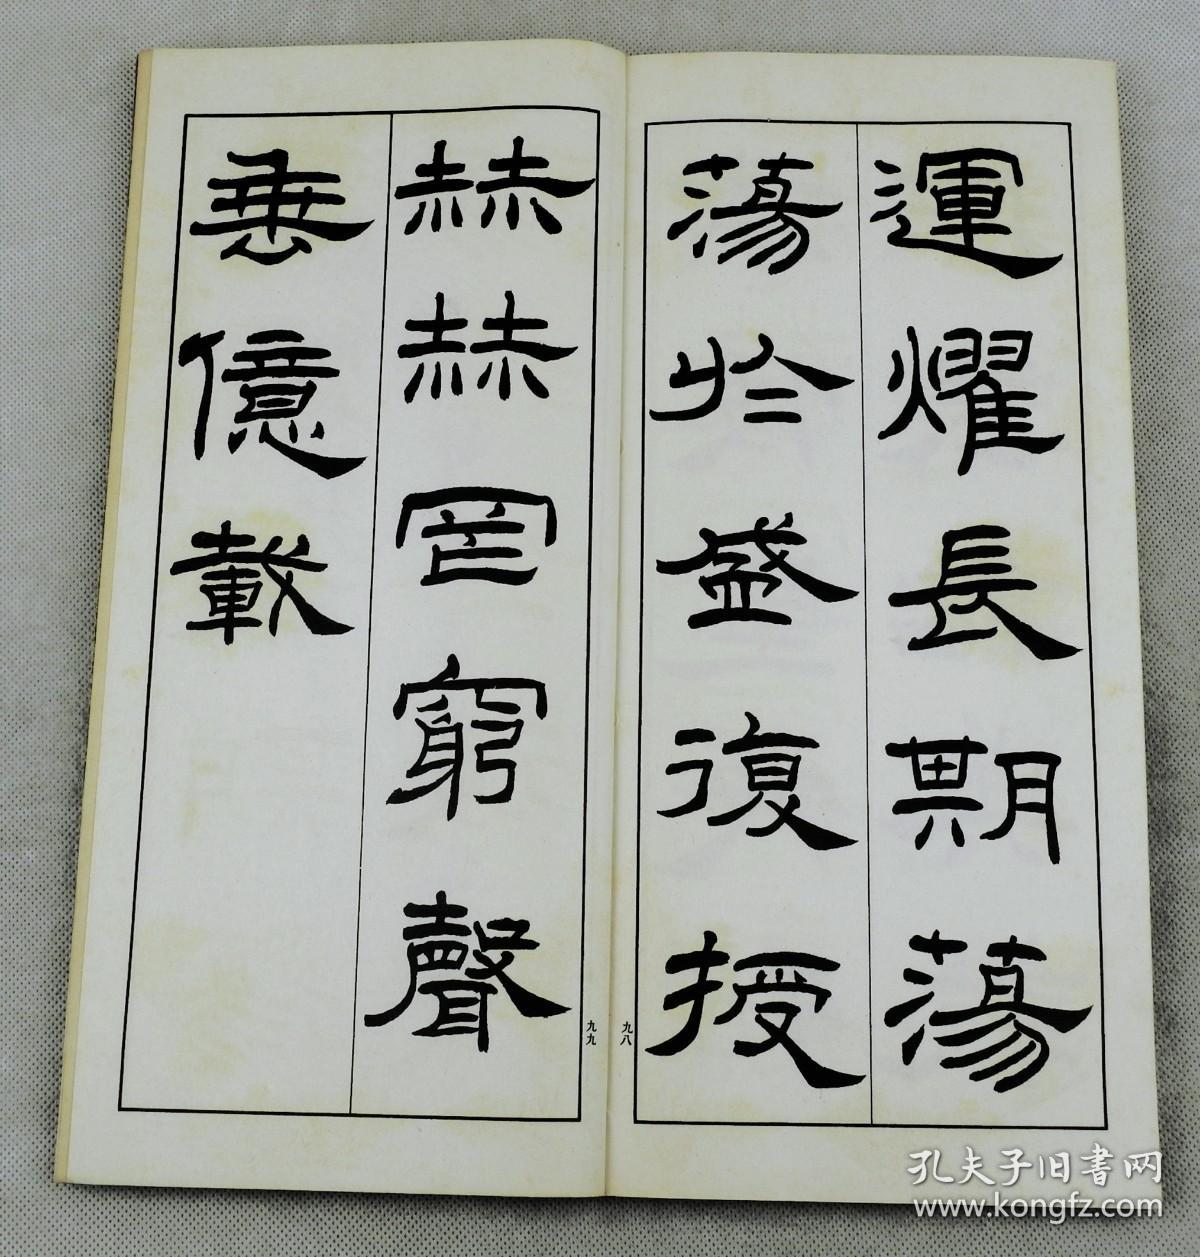 運燿長期蕩
蕩於盛復授
赫赫罔窮聲
垂億載
九八
九九
孔夫子旧書网
www.kongfz.com